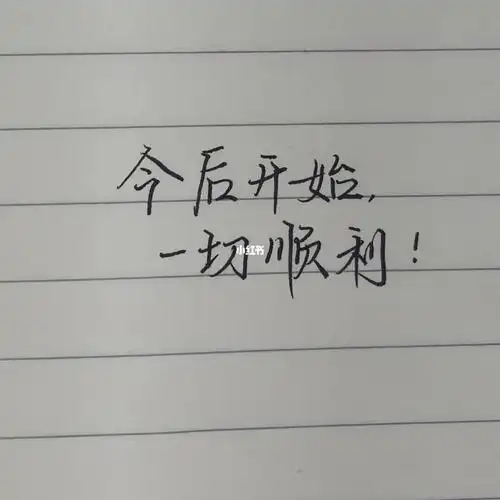 今后开始,
一切顺利!
小红书